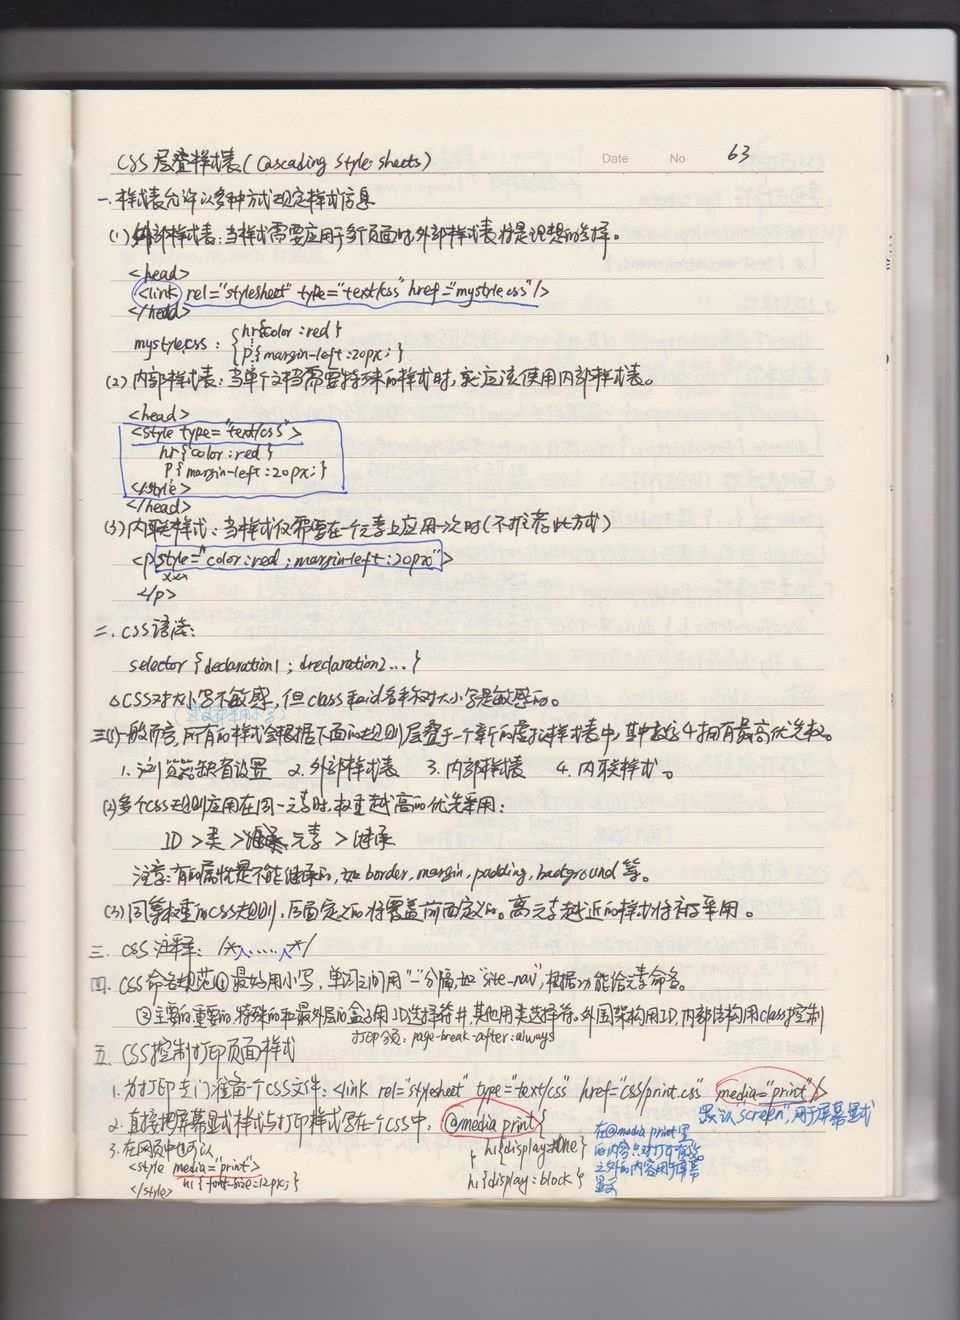 Date No 63
CSS 层叠样式表(Cascading Style Sheets)
一.样式表允许以多种方式规定样式信息
(1)外部样式表:当样式需要应用于多个页面时,外部样式表将是理想的选择。
<head>
<link rel="stylesheet" type="text/css" href="mystyle.css"/>
</head>
mystyle.css: hr{color:red}
p{margin-left:20px;}
(2)内部样式表:当单个文档需要特殊的样式时,就应该使用内部样式表。
<head>
<style type="text/css">
hr{color:red}
p{margin-left:20px;}
</style>
</head>
(3)内联样式:当样式仅需要在一个元素上应用一次时(不推荐此方式)
<p style="color:red;margin-left:20px">
xxx
</p>
二.CSS语法:
selector {declaration1;dreclaration2...}
CSS对大小写不敏感,但class和id名称对大小写是敏感的。
三(1)一般而言,所有的样式会根据下面的规则层叠于一个新的虚拟样式表中,其中数字4拥有最高优先权。
1.浏览器缺省设置 2.外部样式表 3.内部样式表 4.内联样式。
(2)多个CSS规则应用在同一元素时,权重越高的优先采用:
ID >类> 元素 >继承
注意:有的属性是不能继承的,如border,margin,padding,background等。
(3)同等权重的CSS规则,后面定义的将覆盖前面定义的。离元素越近的样式将被采用。
三. CSS注释: /*......*/
四. CSS命名规范①最好用小写,单词之间用"-"分隔,如"site-nav",根据功能给元素命名。
②主要的重要的,特殊的和最外层的盒子用ID选择符#,其他用类选择符.外围架构用ID,内部结构用class控制
打印分页:page-break-after:always
五. CSS控制打印页面样式
1.为打印专门准备一个CSS文件:<link rel="stylesheet" type="text/css" href="css/print.css" media="print"/>
默认"screen",用于屏幕显式
2.直接把屏幕显式样式与打印样式写在一个CSS中, @media print{
h1{display:none}
}
h1{display=block}
在@media print里
的内容只对打印有效
之外的内容用于屏幕
显示
3.在网页中也可以
<style media="print">
h1{font-size=12px;}
</style>